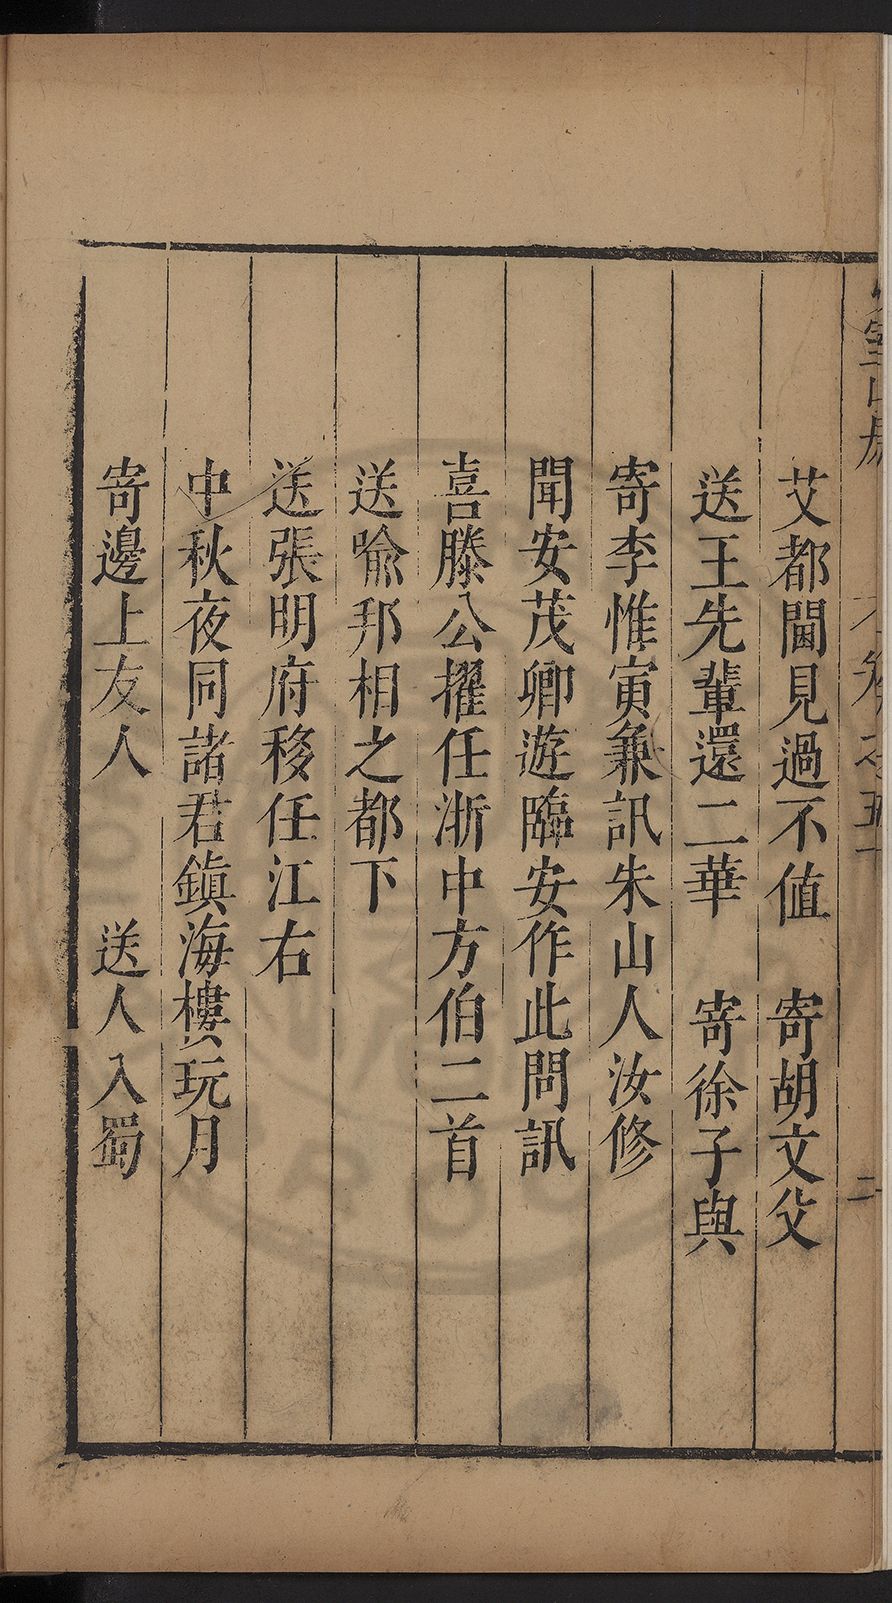 艾都閫見過不值　寄胡文父
送王先輩還二華　寄徐子與
寄李惟寅兼訊朱山人汝修
聞安茂卿遊臨安作此問訊
喜滕公擢任浙中方伯二首
送喻邦相之都下
送張明府移任江右
中秋夜同諸君鎮海樓玩月
寄邊上友人　送人入蜀